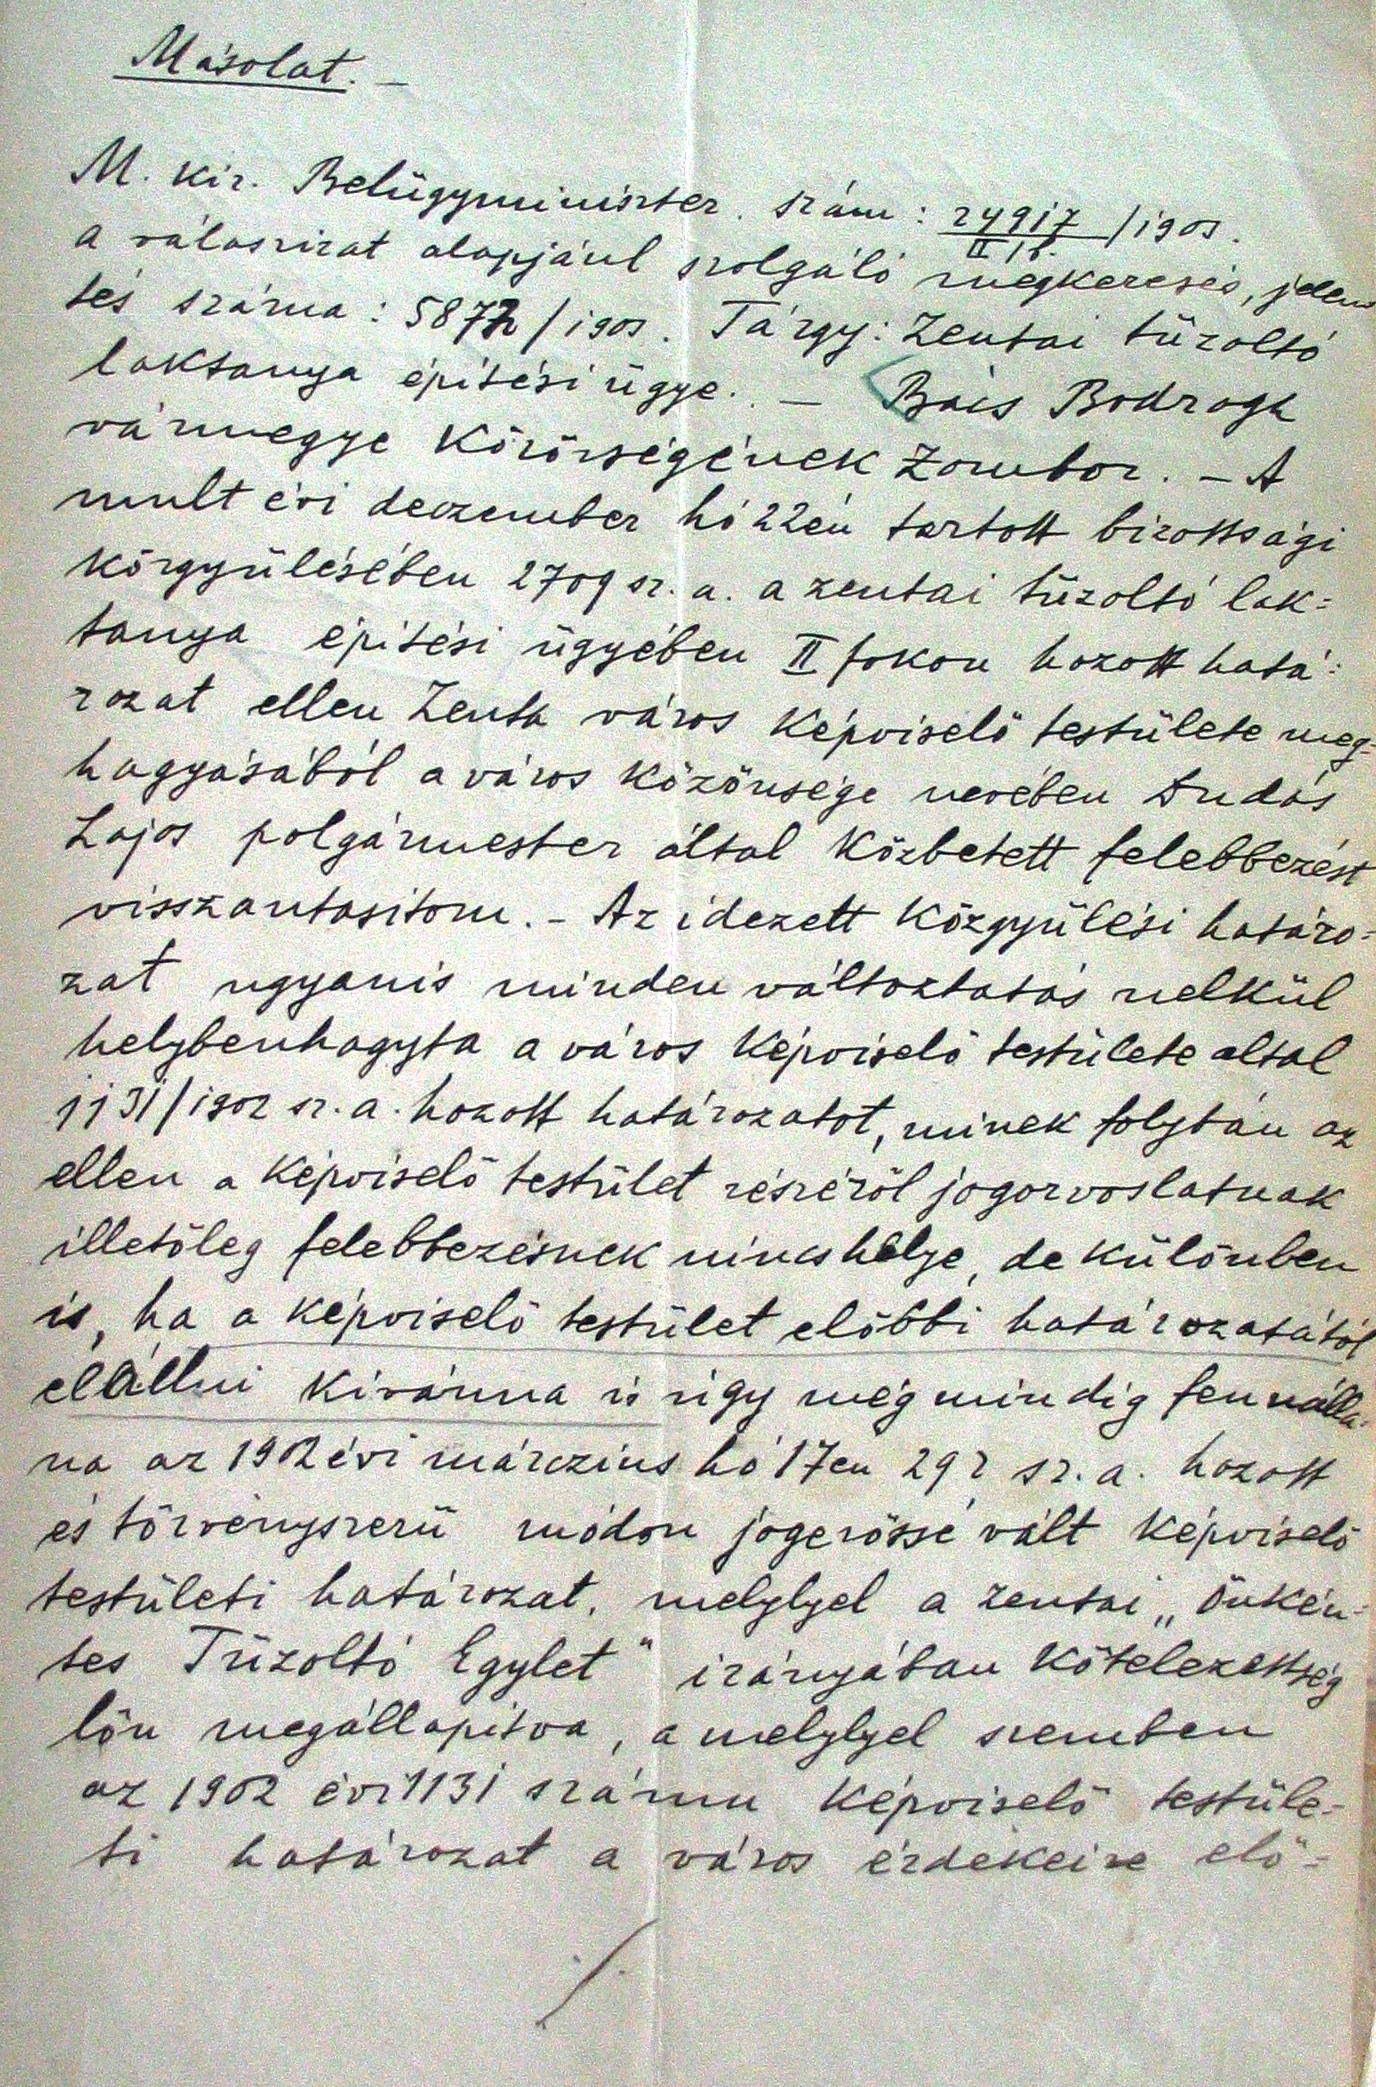 Másolat. –
M. kir. Belügyminiszter. szám: 24917/1903.
II/b.
a válaszirat alapjául szolgáló megkeresés, jelen
tés száma: 5872/1903. Tárgy: Zentai tűzoltó
laktanya épitési ügye. – Bács Bodrogh
vármegye Közönségének Zombor. – A
mult évi deczember hó 22én tartott bizottsági
közgyülésében 2709 sz. a. a zentai tűzoltó lak=
tanya épitési ügyében II fokon hozott hatá=
rozat ellen Zenta város Képviselő testülete meg=
hagyásából a város Közönsége nevében Dudás
Lajos polgármester által Közbetett felebbezést
visszautasitom. – Az idezett Közgyülési határo=
zat ugyanis minden változtatás nelkül
helybenhagyta a város Képviselő testülete altal
1131/1902 sz. a. hozott határozatot, minek folytán az
ellen a Képviselő testület részéről jogorvoslatnak
illetőleg felebbezésnek nincs helye, de különben
is, ha a képviselő testület előbbi határozatától
elállni kivánna is úgy még mindig fennálla=
na az 1902 évi márczius hó 17en 292 sz. a. hozott
és törvényszerü módon jogerőssé vált Képviselő
testületi határozat, melylyel a zentai „Önkén=
tes Tüzoltó Egylet" irányában Kötelezettség
lőn megállapitva, a melylyel szemben
az 1902 évi 1131 számu Képviselő testüle=
ti határozat a város érdekeire elő=
./.